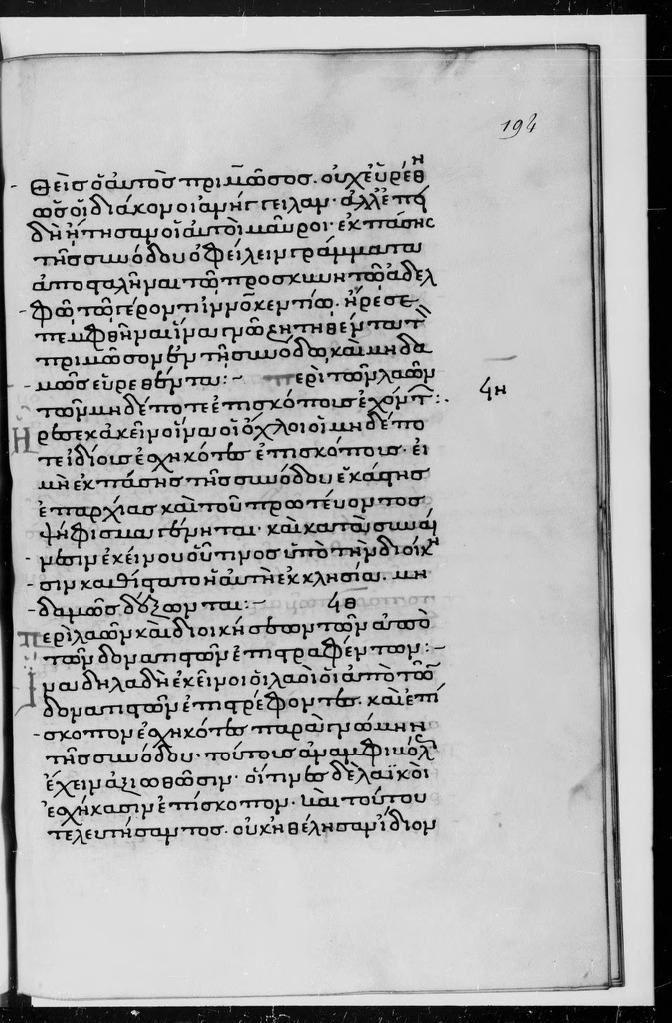 194
θεὶς ὁ αὐτὸς πριμῶσος. οὐχ εὑρέθη
ὡς οἱ διάκονοι ἀνήγγειλαν· ἀλλ' ἐπει
δὴ ἤτησαν οἱ αὐτοὶ μαῦροι· ἐκ πάσης
τῆς συνόδου ὀφείλειν γράμματα
ἀποσταλῆναι τῶ προσκυνητῶ ἀδελ
φῶ τῶ γέροντι ἰννοκεντίω. ἤρεσε
πεμφθῆναι ἵνα γνῶ ζητηθέντα τὸν
πριμῶσον ἐν τῆ συνόδω, καὶ μηδα
μῶς εὑρεθέντα:~ περὶ τῶν λαῶν
τῶν μηδέποτε ἐπισκόπους ἐχόντ:. ϟη
Ἤρεσε κἀκεῖνο ἵνα οἱ ὄχλοι οἱ μηδέπο
τε ἰδίους ἐσχηκότες ἐπισκόπους· εἰ
μὴ ἐκ πάσης τῆς συνόδου ἑκάστης
ἐπαρχίας καὶ τοῦ πρωτεύοντος
ψήφισμα γένηται· καὶ κατὰ συναί
νεσιν ἐκείνου οὗτινος ὑπὸ τὴν διοίκη
σιν καθίστατο ἡ αὐτὴ ἐκκλησία. μη
δαμῶς δέξωνται:~ ϟθ
Περὶ λαῶν καὶ διοικήσεων τῶν ἀπὸ
τῶν δονατιστῶν ἐπιστραφέντων:~
Ἵνα δηλαδὴ ἐκεῖνοι οἱ λαοὶ οἱ ἀπὸ τῶν
δονατιστῶν ἐπιστρέφοντες. καὶ ἐπί
σκοπον ἐσχηκότες παρὰ γνώμην
τῆς συνόδου· τούτους ἀναμφιβόλ
ἔχειν ἀξιωθῶσιν· οἵτινες δὲ λαϊκοὶ
ἐσχήκασιν ἐπίσκοπον. καὶ τούτου
τελευτήσαντος. οὐκ ἠθέλησαν ἴδιον